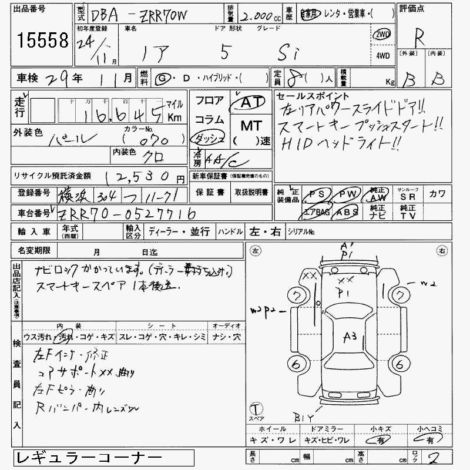 出品番号 型式 DBA - ZRR70W 排気量 2.000cc 車歴 自家用・レンタ・営業車・( ) 評価点
15558 初年度登録 24/11 車名 ノア ドア 形状 グレード 5 Si 2WD 4WD R
車検 29年 11月 燃料 G・D・ハイブリッド・( ) 定員 8( )人 積載量 Kg 外装 B 内装 B
走行 16,645 マイル Km フロア コラム ダッシュ AT MT( )速
セールスポイント
左リアパワースライドドア!!
スマートキープッシュスタート!!
HIDヘッドライト!!
外装色 パール カラーNo. (070)
内装色 クロ 冷房 AAC
リサイクル預託済金額 12,530円 新車保証書(保証継続のもの) 純正装備品 PS PW 純正AW サンルーフ SR カワ
登録番号 横浜 304 保証書 取扱説明書 エアB AG ABS 純正ナビ 純正TV
車台番号 ZRR70-0527716
輸入車 年式(西暦) 輸入区分 ディーラー・並行 ハンドル 左・右 シリアルNo.
名変期限 月 日迄
出品店記入(注意事項)
ナビロックかかっています。
スマートキースペア1本後送。
検査員記入
内装 シート オーディオ
ウス汚れ・汚れ・コゲ・キズ スレ・コゲ・穴・キレ・シミ ナシ・穴
左Fインナー修正
コアサポートXX曲り
左Fピラー曲り
Rバンパー内
左 右
A1 P1
XX XX
P1
W2
W2P2
A3
6 6
T スペア
B1Y
ホイール ドアミラー 小キズ 小ヘコミ
キズ・ワレ キズ・ヒビ・ワレ 有 有
レギュラーコーナー 長さ cm 幅 cm 高さ cm 2